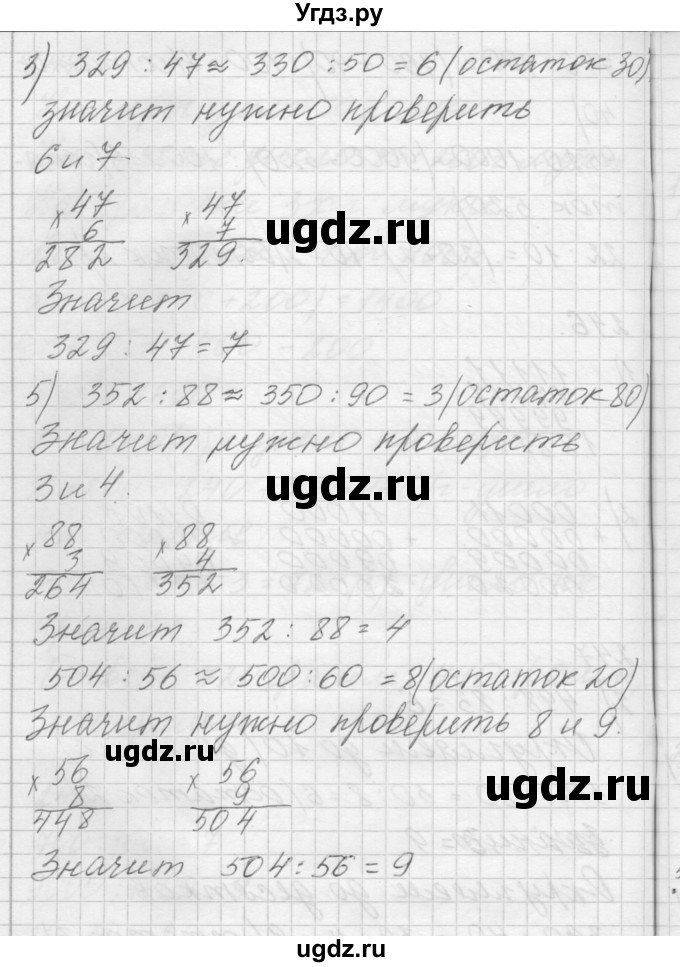 Угдз.ру
3) 329 : 47 ≈ 330 : 50 = 6 (остаток 30)
значит нужно проверить
6 и 7.
× 47 × 47
6 7
282 329.
ugdz.ru
Значит
329 : 47 = 7
5) 352 : 88 ≈ 350 : 90 = 3 (остаток 80)
Значит нужно проверить
3 и 4.
ugdz.ru
× 88 × 88
3 4
264 352
Значит 352 : 88 = 4
504 : 56 ≈ 500 : 60 = 8 (остаток 20)
Значит нужно проверить 8 и 9.
ugdz.ru
× 56 × 56
8 9
448 504
ugdz.ru
Значит 504 : 56 = 9
ugdz.ru